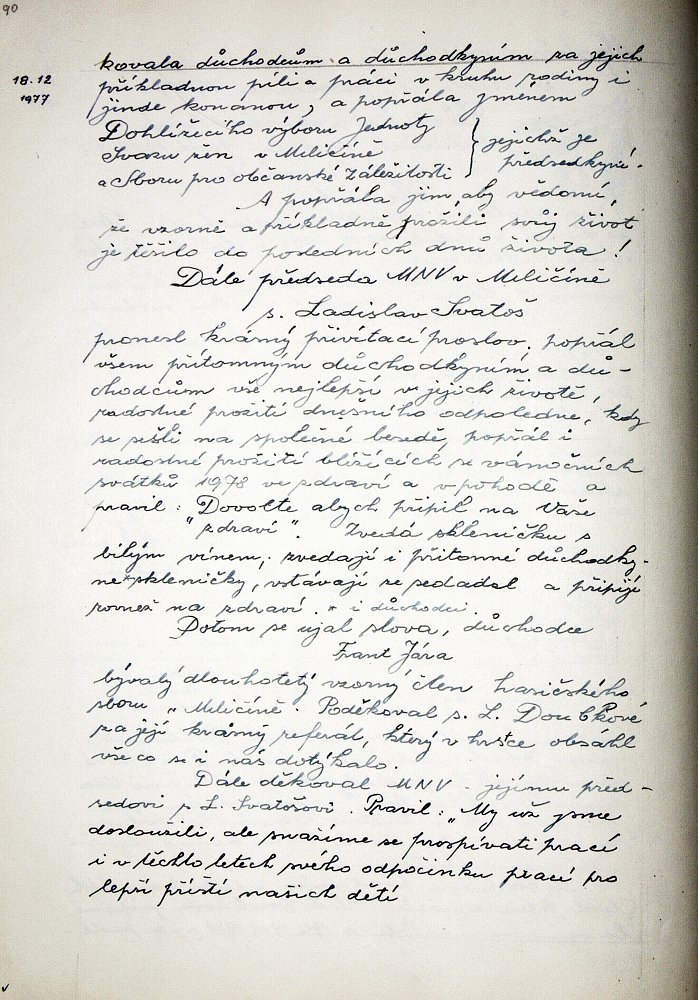 90
18.12
1977
kovala důchodcům a důchodkyním za jejich
příkladnou píli a práci v kruhu rodiny i
jinde konanou, a popřála jménem
Dohlížecího výboru Jednoty
Svazu žen v Miličíně
a Sboru pro občanské záležitosti
} jejichž je
předsedkyní.
A popřála jim, aby vědomí,
že vzorně a příkladně prožili svůj život
je těšilo do posledních dnů života!
Dále předseda MNV v Miličíně
s. Ladislav Svatoš
pronesl krásný přivítací proslov, popřál
všem přítomným důchodkyním a dů-
chodcům vše nejlepší v jejich životě,
radostné prožití dnešního odpoledne, kdy
se sešli na společné besedě, popřál i
radostné prožití blížících se vánočních
svátků 1978 ve zdraví a v pohodě a
pravil: Dovolte abych připil na Vaše
"zdraví". Zvedá skleničku s
bílým vínem, zvedají i přítomné důchodky-
ně* skleničky, vstávají ze sedadel a připíjí
rovněž na zdraví. * i důchodci.
Potom se ujal slova, důchodce
Frant Jára
bývalý dlouholetý vzorný člen hasičského
sboru v Miličíně. Poděkoval s. L. Doubkové
za její krásný referát, který v hrstce obsáhl
vše co se i nás dotýkalo.
Dále děkoval MNV - jejímu před-
sedovi s L. Svatošovi. Pravil: "My už jsme
dosloužili, ale snažíme se prospívati prací
i v těchto letech svého odpočinku prací pro
lepší příští našich dětí